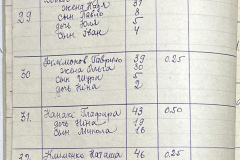 29 жена Надя 31
сын Павло 8
дочь Юлия 5
сын Иван 4
30. Филимонов Гаврило 39 0.25
жена Ольга 30
сын Шура 5
дочь Нина 2
31. Канас Глафира 43 0.50
дочь Нина 19
сын Микола 16
32. Клименко Наташа 46 0.25